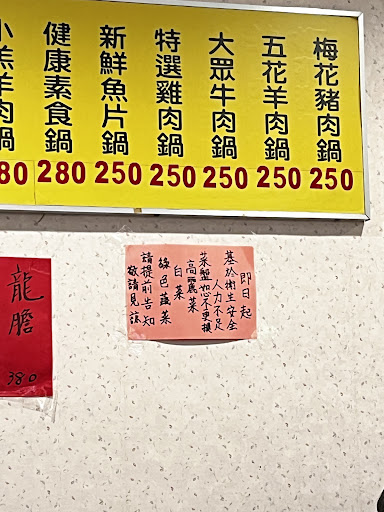 梅花豬肉鍋
250
五花羊肉鍋
250
大眾牛肉鍋
250
特選雞肉鍋
250
新鮮魚片鍋
250
健康素食鍋
280
羊肉鍋
80
即日起
基於衛生安全
人力不足
菜盤恕不更換
高麗菜
白菜
綠色蔬菜
請提前告知
敬請見諒
龍膽
380